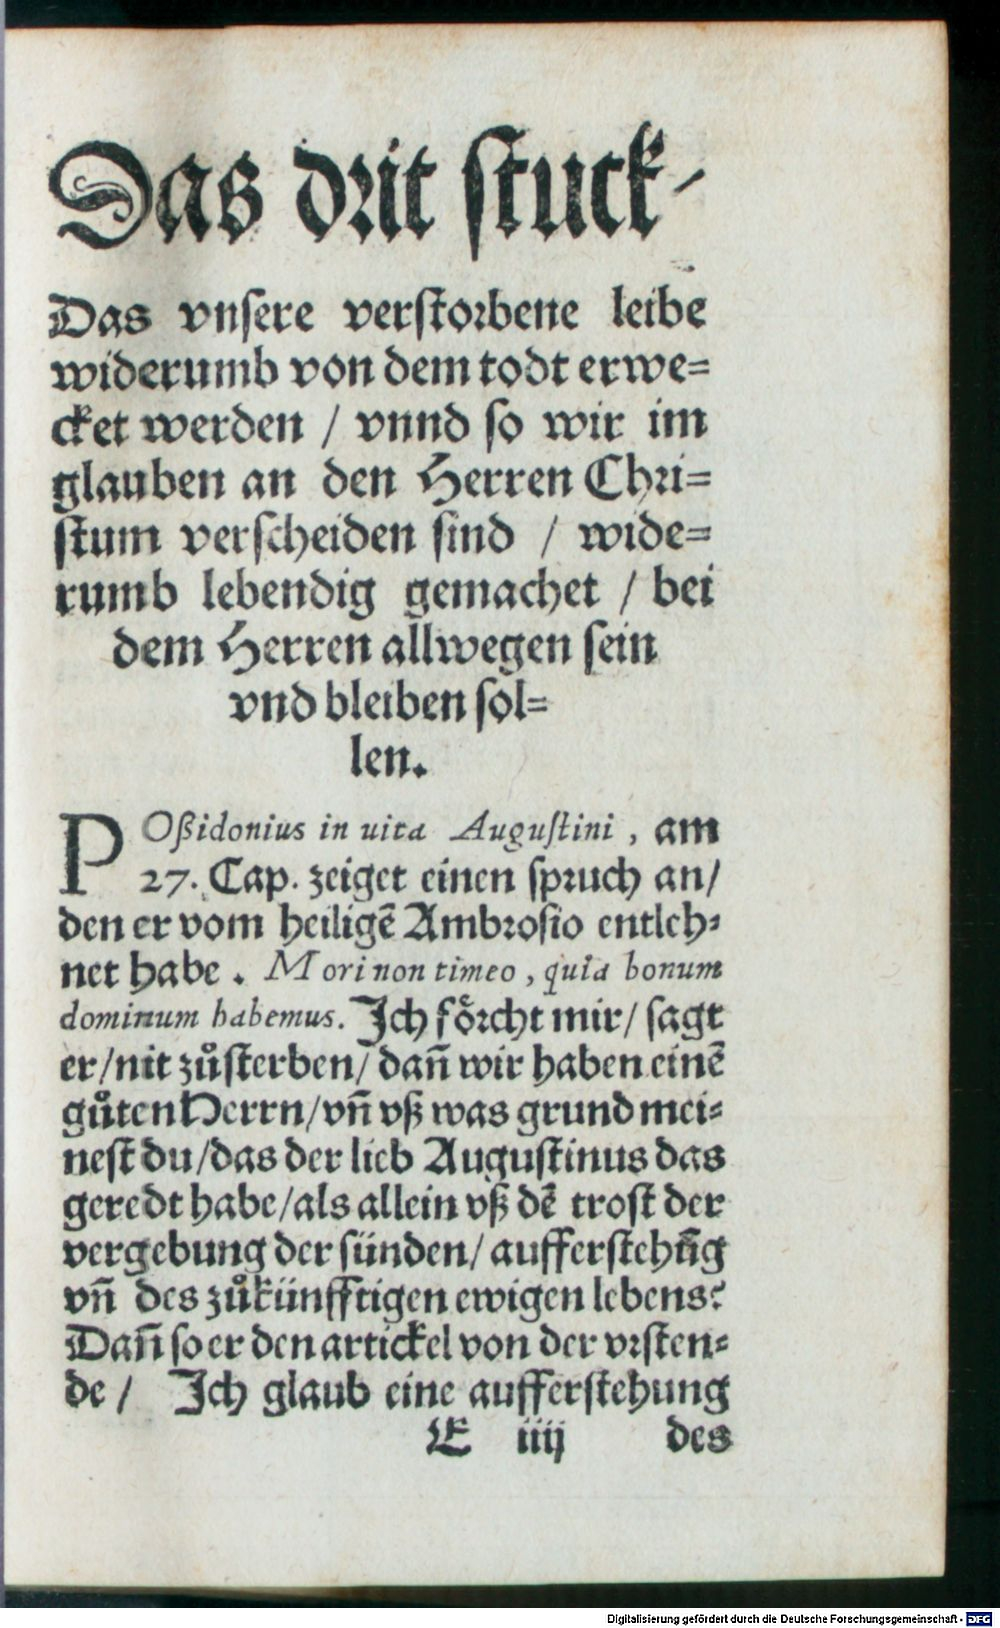 Das drit stuck/
Das vnsere verstorbene leibe
widerumb von dem todt erwe=
cket werden / vnnd so wir im
glauben an den Herren Chri=
stum verscheiden sind / wide=
rumb lebendig gemachet / bei
dem Herren allwegen sein
vnd bleiben söl=
len.
POßidonius in uita Augustini, am
27. Cap. zeiget einen spruch an/
den er vom heiligẽ Ambrosio entleh=
net habe. Mori non timeo, quia bonum
dominum habemus. Ich förcht mir/ sagt
er/nit zůsterben/ dañ wir haben einẽ
gůten Herrn/vñ vß was grund mei=
nest du/das der lieb Augustinus das
geredt habe/als allein vß dẽ trost der
vergebung der sünden/ aufferstehũg
vñ des zůkünfftigen ewigen lebens?
Dañ so er den artickel von der vrsten=
de / Ich glaub eine aufferstehung
E iiij des
Digitalisierung gefördert durch die Deutsche Forschungsgemeinschaft - DFG